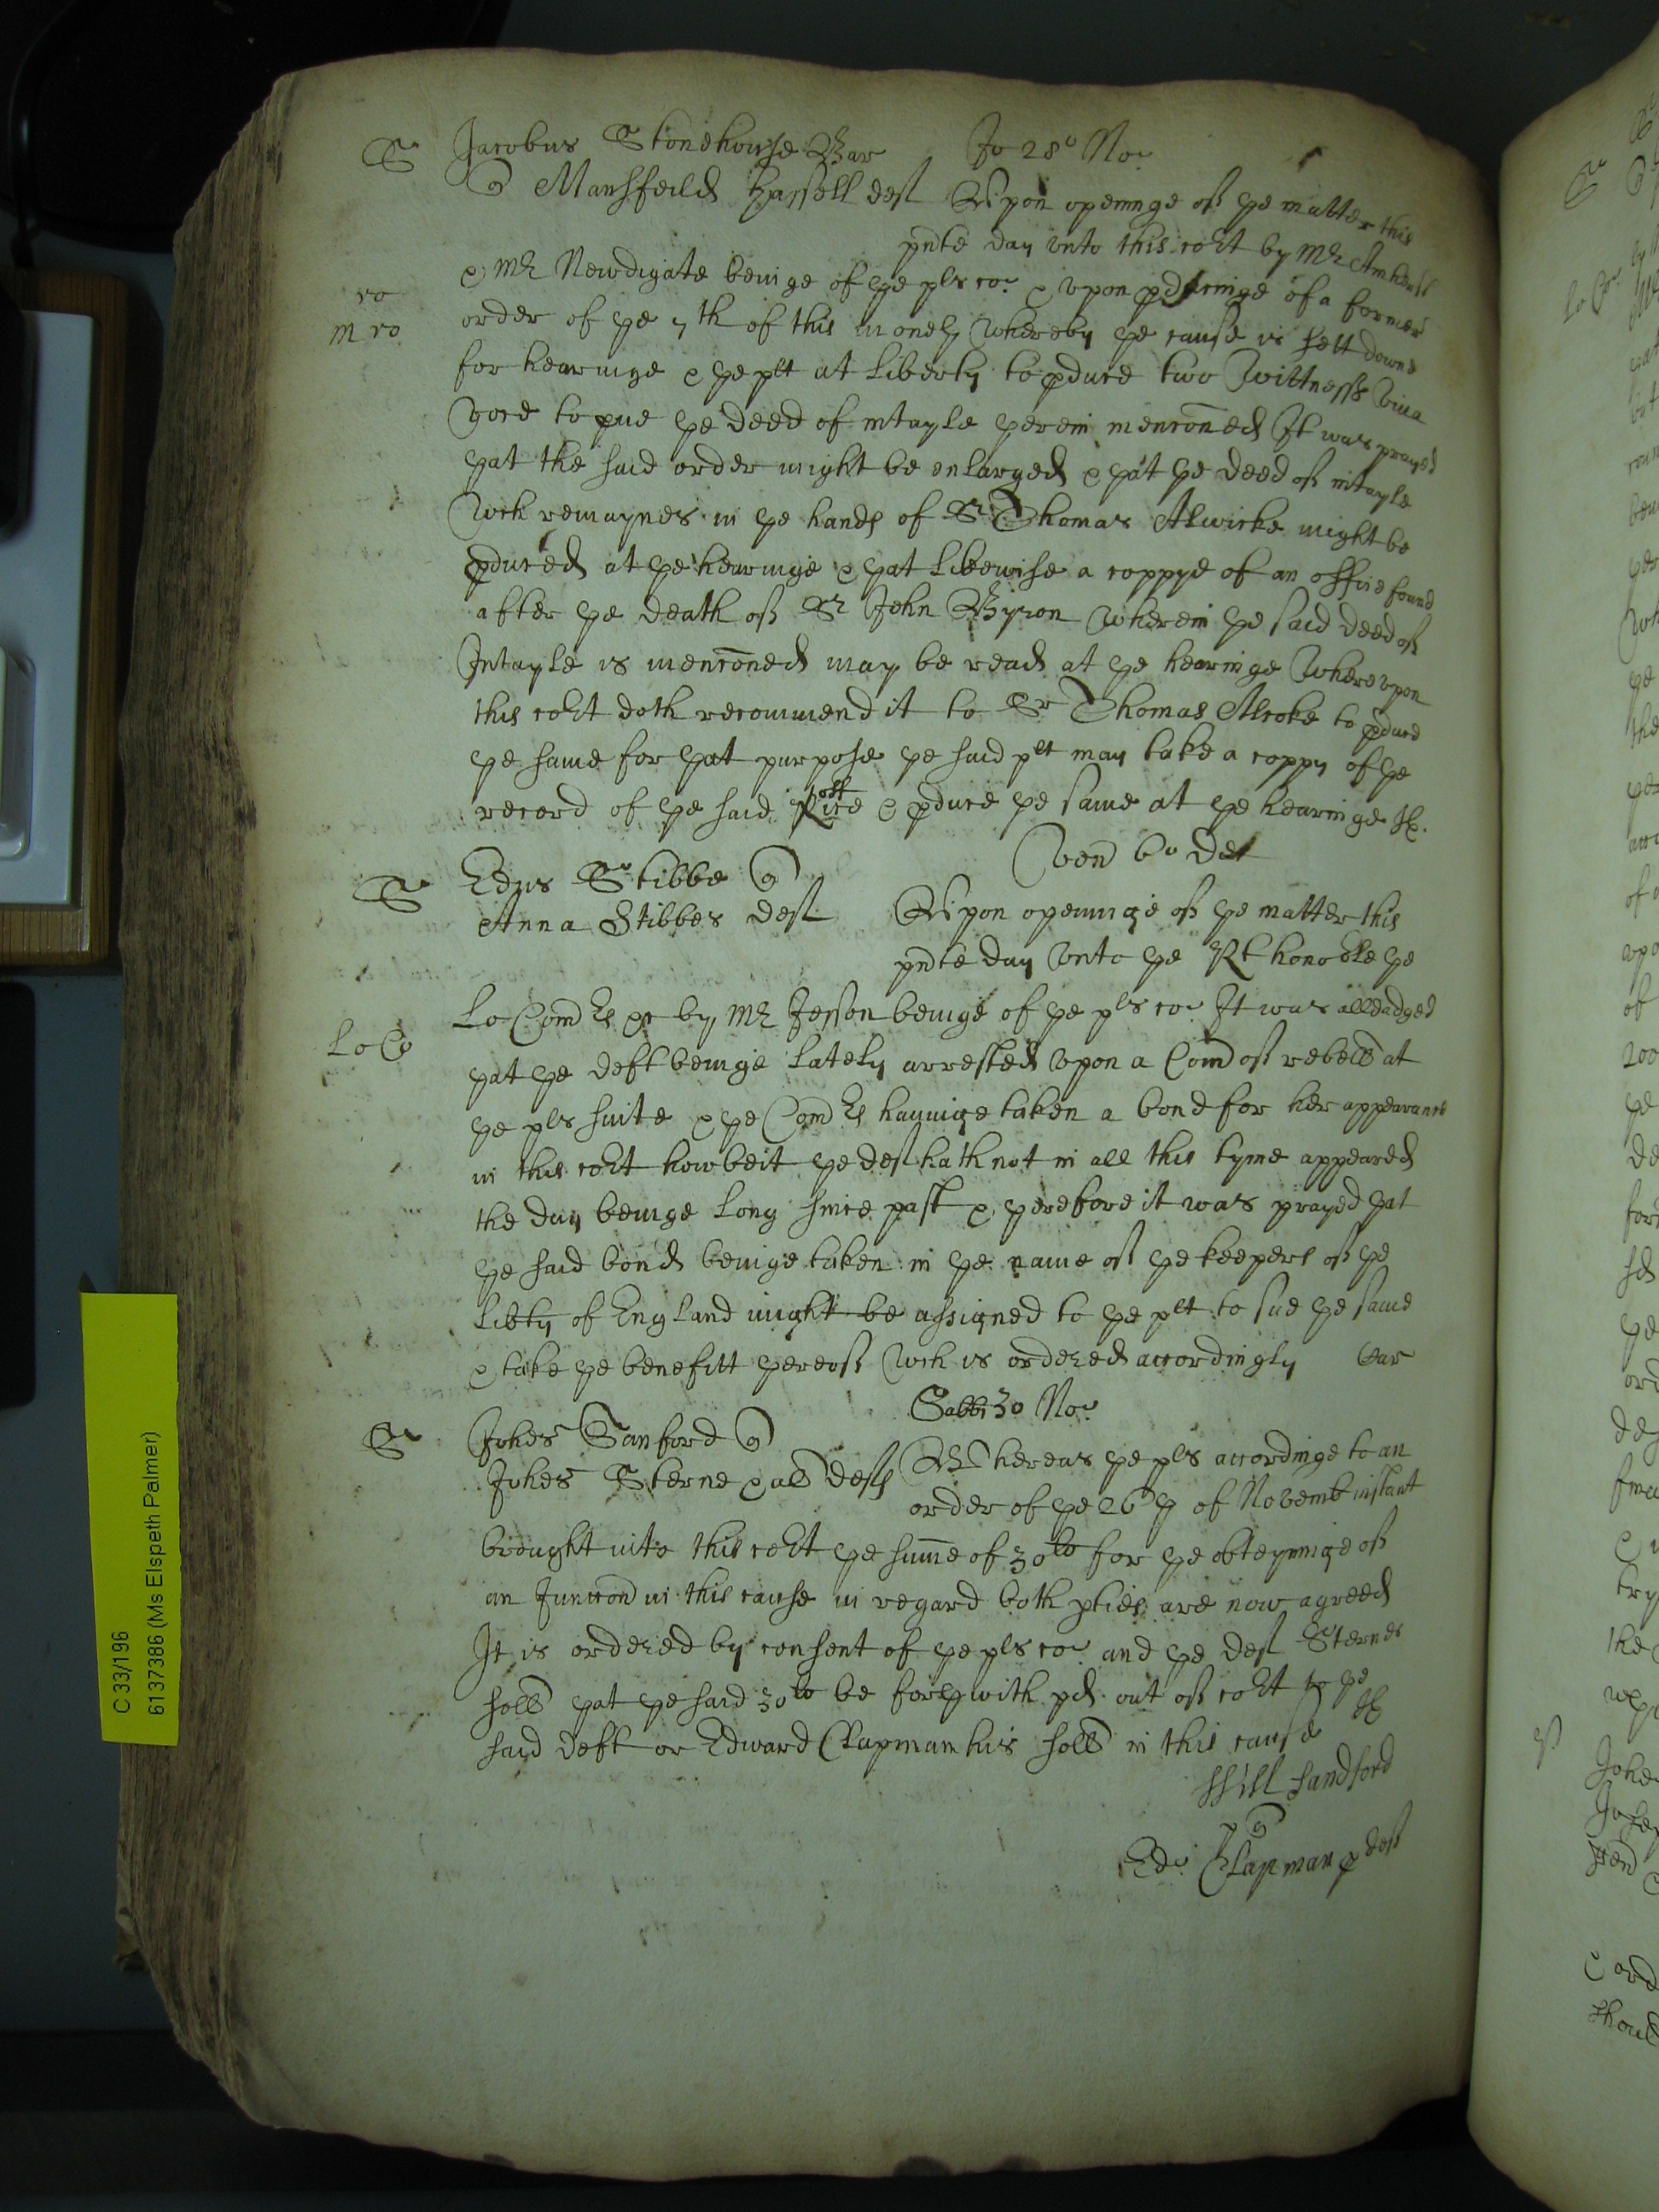 S Jacobus Stonehouse Bar Jo 28o No:
q Mansfeild Hassell deft Upon openinge of ye matter this
pnte day vnto this cort by Mr Amherst
& Mr Newdigate beinge of ye pls co: & vpon pducinge of a former
ro
order of ye 7th of this moneth whereby ye cause is sett downe
m ro
for hearinge & ye plt at liberty to pduce two wittnesss viva
voce to pve ye deed of intayle yerein menconed It was prayed
yat the said order might be enlarged & yat ye deed of intayle
wch remaynes in ye hands of Sr Thomas Alwicke might be
pduced at ye hearinge & yat likewise a coppye of an office found
after ye death of Sr John Byron wherein ye said deed of
Intayle is menconed may be read at ye hearinge Wherevpon
this cort doth recommend it to Sr Thomas Alcoke to pduce
ye same for yat purpose ye said plt may take a coppy of ye
record of ye said office & pduce ye same at ye hearinge
Ven 6o Dec
S Edrus Stibbe q
Anna Stibbes deft Upon openinge of ye matter this
pnte day vnto ye Rt honoble ye
Lo Comrs &c by Mr Jesson beinge of ye pls co: It was alleadged
Lo Co
yat ye deft beinge lately arrested vpon a Comd of rebell at
ye pls suite & ye Comrs hauinge taken a bond for her appearance
in this cort howbeit ye deft hath not in all this tyme appeared
the day beinge long since past & yerefore it was prayed yat
ye said bond beinge taken in ye name of ye keepers of ye
Libty of England might be assigned to ye plt to sue ye same
& take ye benefitt yereof wch is ordered accordingly Car
Sabbi 30 No:
S Johes Sanford q
Johes Sterne & al defts Whereas ye pls accordinge to an
order of ye 26 th of Novemb instant
brought into this cort ye summe of 30li for ye obteyninge of
an Junccon in this cause in regard both pties are now agreed
It is ordered by consent of ye pls co: and ye deft Sternes
soll yat ye said 30li be forthwith pd out of cort to ye
said deft or Edward Clapman his soll in this cause
Will Sandford
p q
Edw: Clapman p deft
C 33/196
6137386 (Ms Elspeth Palmer)